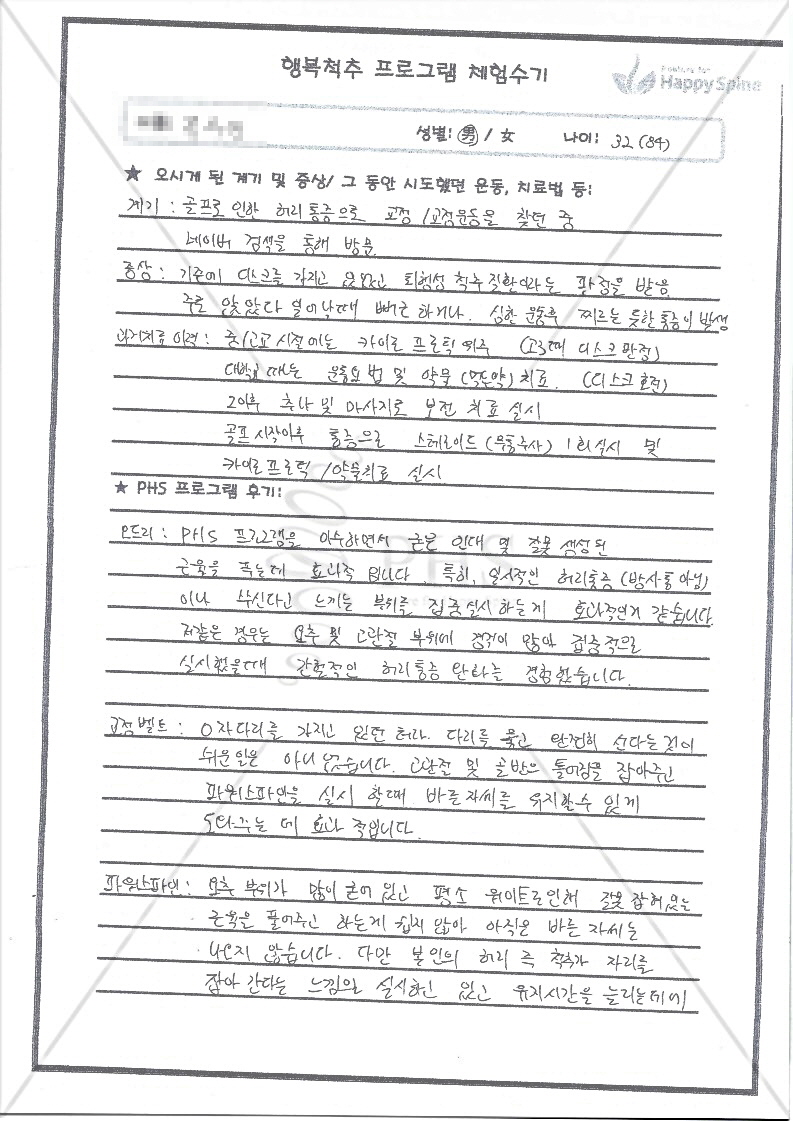 행복척추 프로그램 체험수기
Posture for
HappySpine
성별: 男 / 女 나이: 32 (84)
★ 오시게 된 계기 및 증상/ 그 동안 시도했던 운동, 치료법 등:
계기 : 골프로 인한 허리통증으로 교정 /교정운동을 찾던 중
네이버 검색을 통해 방문.
증상 : 기존에 디스크를 가지고 있었고 퇴행성 척추질환이라는 판정을 받음.
주로 앉았다 일어날때 뻐근하거나. 심한 운동후 찌르는 듯한 통증이 발생
과거치료이력 : 중/고교 시절에는 카이로 프로틱 위주 (고3때 디스크 판정)
대학교때는 운동요법 및 약물 (먹는약) 치료. (디스크 호전)
그이후 추나 및 마사지로 보전 치료 실시
골프 시작이후 통증으로 스테로이드 (무통주사) 1회 실시 및
카이로프로틱 /약물치료 실시
★ PHS 프로그램 후기:
모드리 : PHS 프로그램을 이수하면서 굳은 인대 및 잘못 생성된
근육을 푸는데 효과적 입니다. 특히, 일시적인 허리통증 (방사통 아님)
이나 쑤신다고 느끼는 부위를 집중 실시 하는게 효과적인거 같습니다.
저같은 경우는 요추 및 고관절 부위에 경직이 많아 집중적으로
실시했을때 간헐적인 허리통증 완화를 경험했습니다.
PHS
교정벨트 : O자다리를 가지고 있던 터라. 다리를 묶고 완전히 선다는 것이
쉬운일은 아니었습니다. 고관절 및 골반의 틀어짐을 잡아주고
파워스파인을 실시 할때 바른자세를 유지할수 있게
도와주는 데 효과 적입니다.
파워스파인 : 요추 부위가 많이 굳어 있고 평소 웨이트로 인해 잘못 잡혀있는
근육을 풀어주고 하는게 쉽지 않아 아직은 바른 자세는
나오지 않습니다. 다만 본인의 허리 즉 척추가 자리를
잡아 간다는 느낌으로 실시하고 있고 유지시간을 늘리는데에